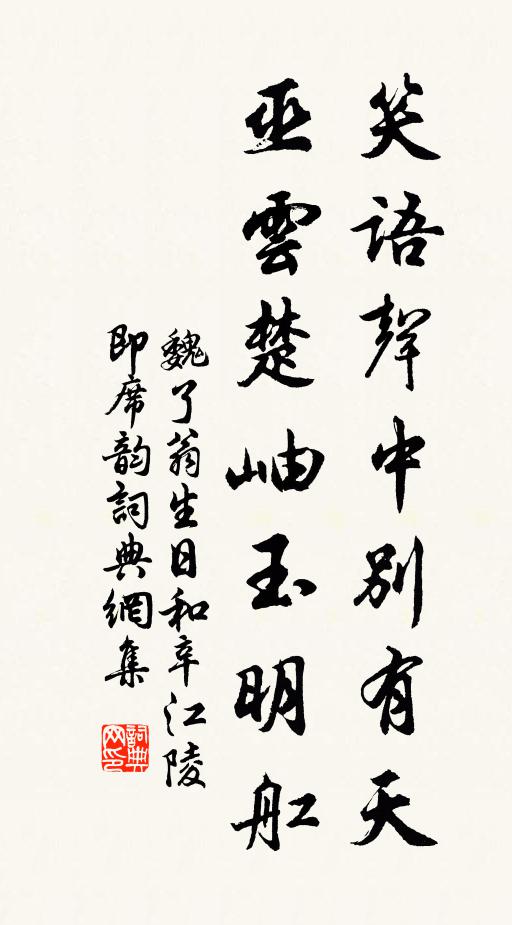 笑語聲中別有天
巫雲楚岫玉明舡
魏了翁生日和辛江陵
即席韵詞典網集
詞典网印